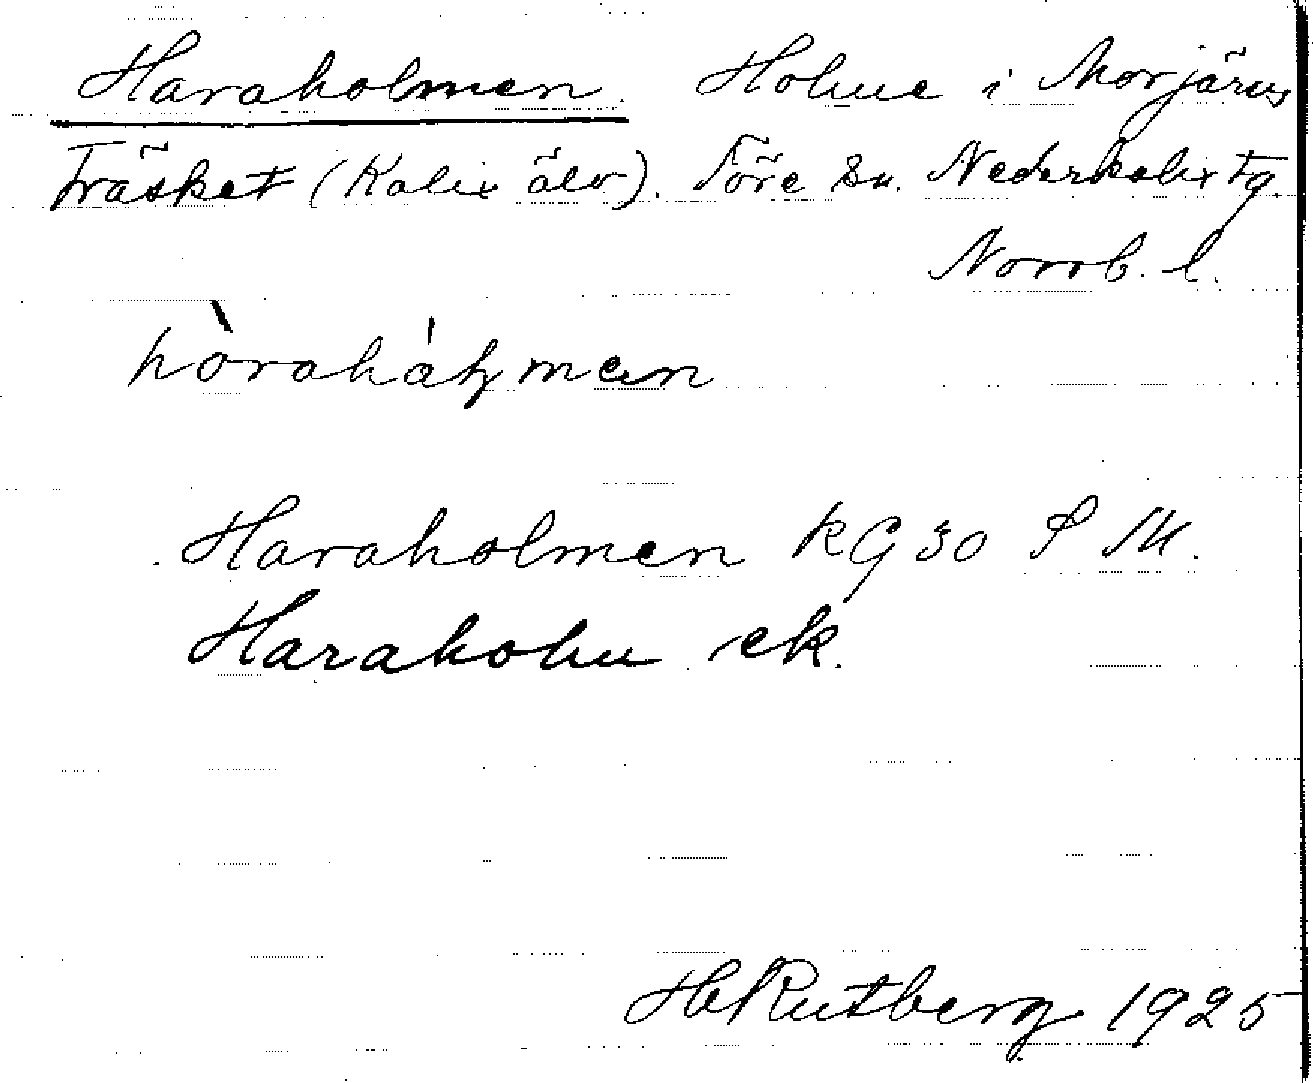 Haraholmen. Holme i Morjärvs
Träsket (Kalix älv). Töre sn. Nederkalix tg.
Norrb. l.
hàraháɫmen
Haraholmen kG 30 S M.
Haraholm ek.
H Rutberg 1925